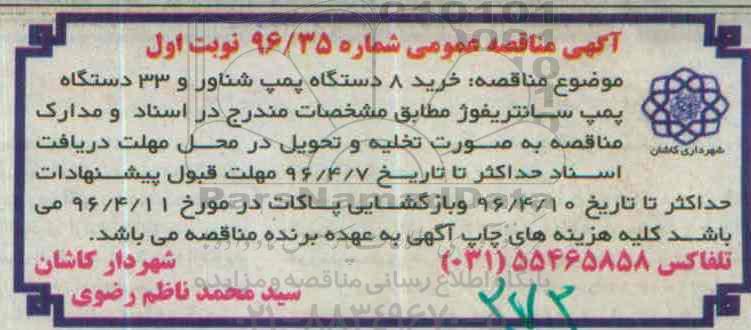 آگهی مناقصه عمومی شماره ۹۶/۳۵ نوبت اول
موضوع مناقصه: خرید ۸ دستگاه پمپ شناور و ۳۳ دستگاه
پمپ سانتریفوژ مطابق مشخصات مندرج در اسناد و مدارک
مناقصه به صورت تخلیه و تحویل در محل مهلت دریافت
اسناد حداکثر تا تاریخ ۹۶/۴/۷ مهلت قبول پیشنهادات
حداکثر تا تاریخ ۹۶/۴/۱۰ وبازگشایی پاکات در مورخ ۹۶/۴/۱۱ می
باشد کلیه هزینه های چاپ آگهی به عهده برنده مناقصه می باشد.
شهرداری کاشان
تلفاکس ۵۵۴۶۵۸۵۸ (۰۳۱)
شهردار کاشان
سید محمد ناظم رضوی
پایگاه اطلاع رسانی مناقصه و مزایده
۰۲۱-۸۸۳۴۹۶۷۰
۳۷۳